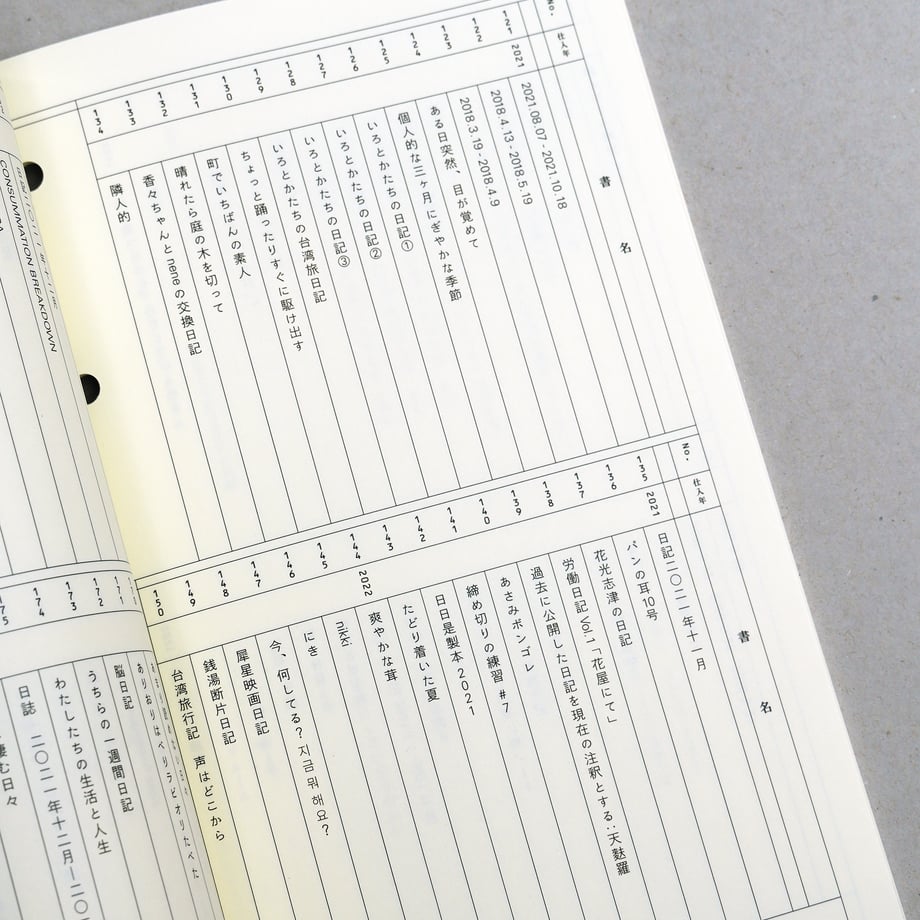 No. 仕入年 書名
121 2021 2021.08.07 - 2021.10.18
122 2018.4.13 - 2018.5.19
123 2018.3.19 - 2018.4.9
124 ある日突然、目が覚めて
125 個人的な三ヶ月 にぎやかな季節
126 いろとかたちの日記①
127 いろとかたちの日記②
128 いろとかたちの日記③
129 いろとかたちの台湾旅日記
130 ちょっと踊ったりすぐに駆け出す
131 町でいちばんの素人
132 晴れたら庭の木を切って
133 香々ちゃんとneneの交換日記
134 隣人的
No. 仕入年 書名
135 2021 日記二〇二一年十一月
136 パンの耳10号
137 花光志津の日記
138 労働日記 Vol.1「花屋にて」
139 過去に公開した日記を現在の注釈とする:天麩羅
140 あさみボンゴレ
141 締め切りの練習 #7
142 日日是製本 2021
143 たどり着いた夏
144 2022 爽やかな茸
145 niki
146 にき
147 今、何してる? 지금 뭐 해요?
148 犀星映画日記
149 銭湯断片日記
150 台湾旅行記 声はどこから
CONSUMMATION BREAKDOWN
171
172
173
174
175
ありおりはべりラビオリたべた
脳日記
うちらの一週間日記
わたしたちの生活と人生
日誌 二〇二一年十二月ー二〇
棲む日々